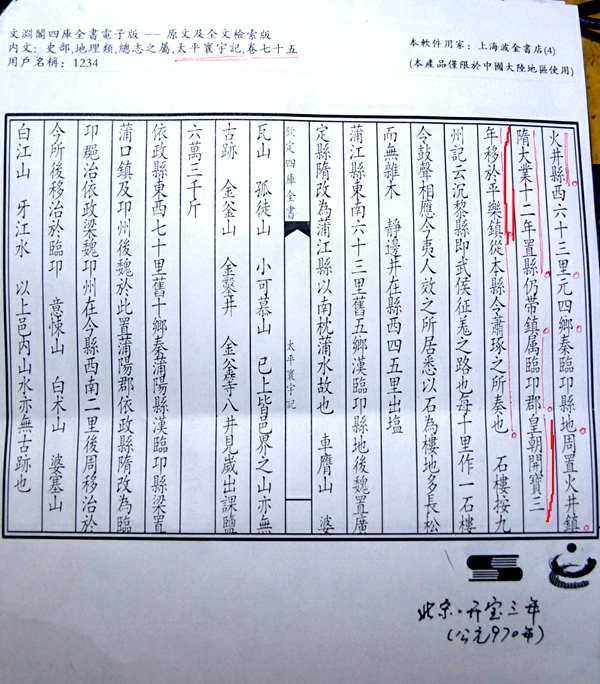 文淵閣四庫全書電子版 －－ 原文及全文檢索版
內文：史部,地理類,總志之屬,太平寰宇記,卷七十五
用戶名稱：1234
本軟件用家：上海波金書店(4)
(本產品僅限於中國大陸地區使用)
火井縣西六十三里元四鄉秦臨邛縣地周置火井鎮
隋大業十二年置縣仍帶鎮属臨邛郡皇朝開寶三
年移於平樂鎮從本縣令蕭琢之所奏也　石樓按九
州記云沉黎縣即武侯征羗之路也每十里作一石樓
令鼓聲相應今夷人效之所居悉以石為樓地多長松
而無雜木　靜邊井在縣西四五里出塩
蒲江縣東南六十三里舊五鄉漢臨邛縣地後魏置廣
定縣隋改為蒲江縣以南枕蒲水故也　車膺山　婆
欽定四庫全書
太平寰宇記
瓦山　孤徒山　小可慕山　已上皆邑界之山亦無
古跡　金釡山　金鑿井　金釡等八井見歲出課鹽
六萬三千斤
依政縣東西七十里舊十鄉秦蒲陽縣漢臨邛縣梁置
蒲口鎮及邛州後魏於此置蒲陽郡依政縣隋改為臨
邛郡治依政梁魏邛州在今縣西南一里後周移治於
今所後移治於臨邛　意悚山　白术山　婆塞山
白江山　牙江水　以上邑內山水亦無古跡也
北宋·开宝三年
(公元970年)